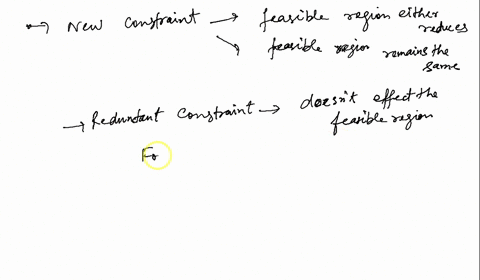 New constraint → feasible region either reduces
↘ feasible region remains the same
→ Reduntant constraint → doesn't effect the feasible region
Fo